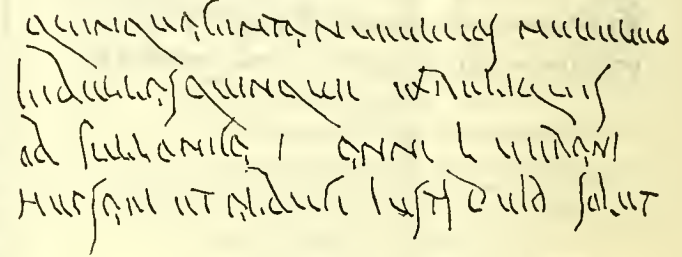 quinquaginta nummos nummo
libellas quinque ex reliquis
ob fullonica anni L Verani
Hupsaei et Albuci Iusti d v i d solut